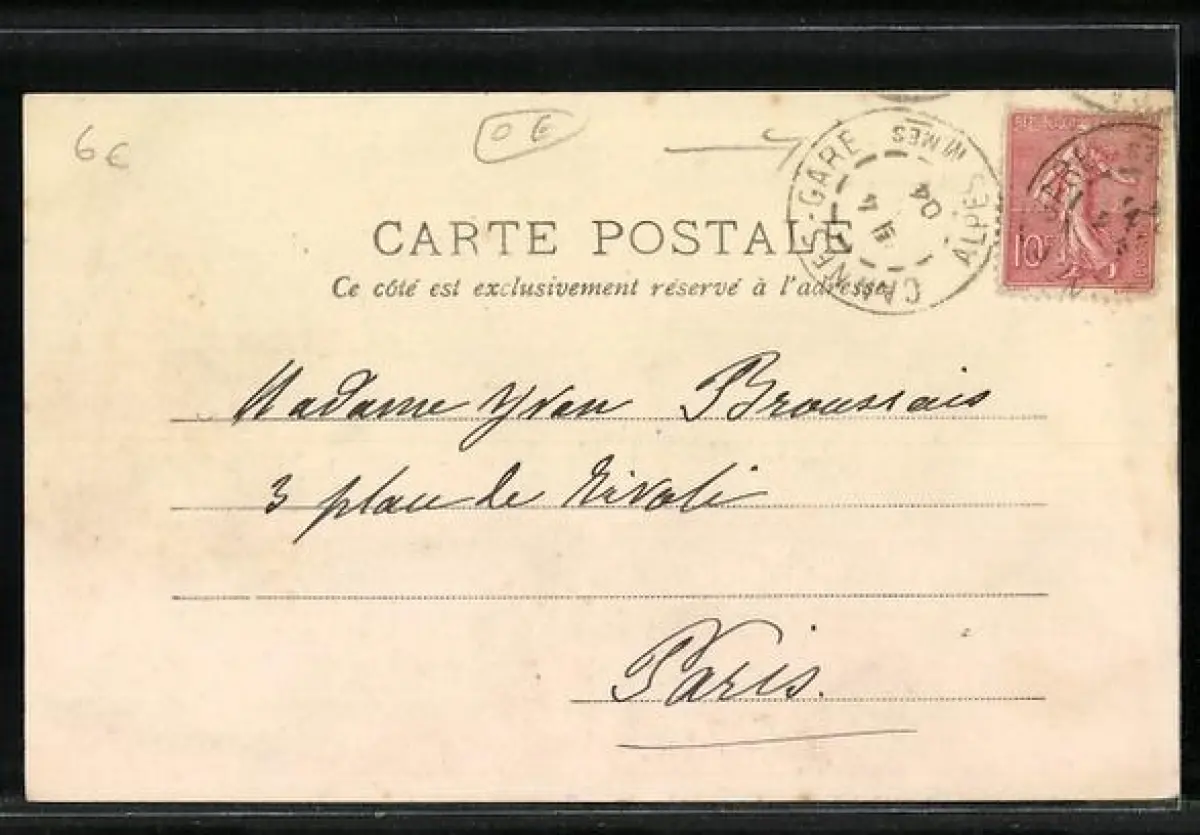 6€
0 €
CANNES-GARE
ALPES MMES
04
10c
CARTE POSTALE
Ce côté est exclusivement réservé à l'adresse
Madame Yvan Broussais
3 place de Rivoli
Paris.